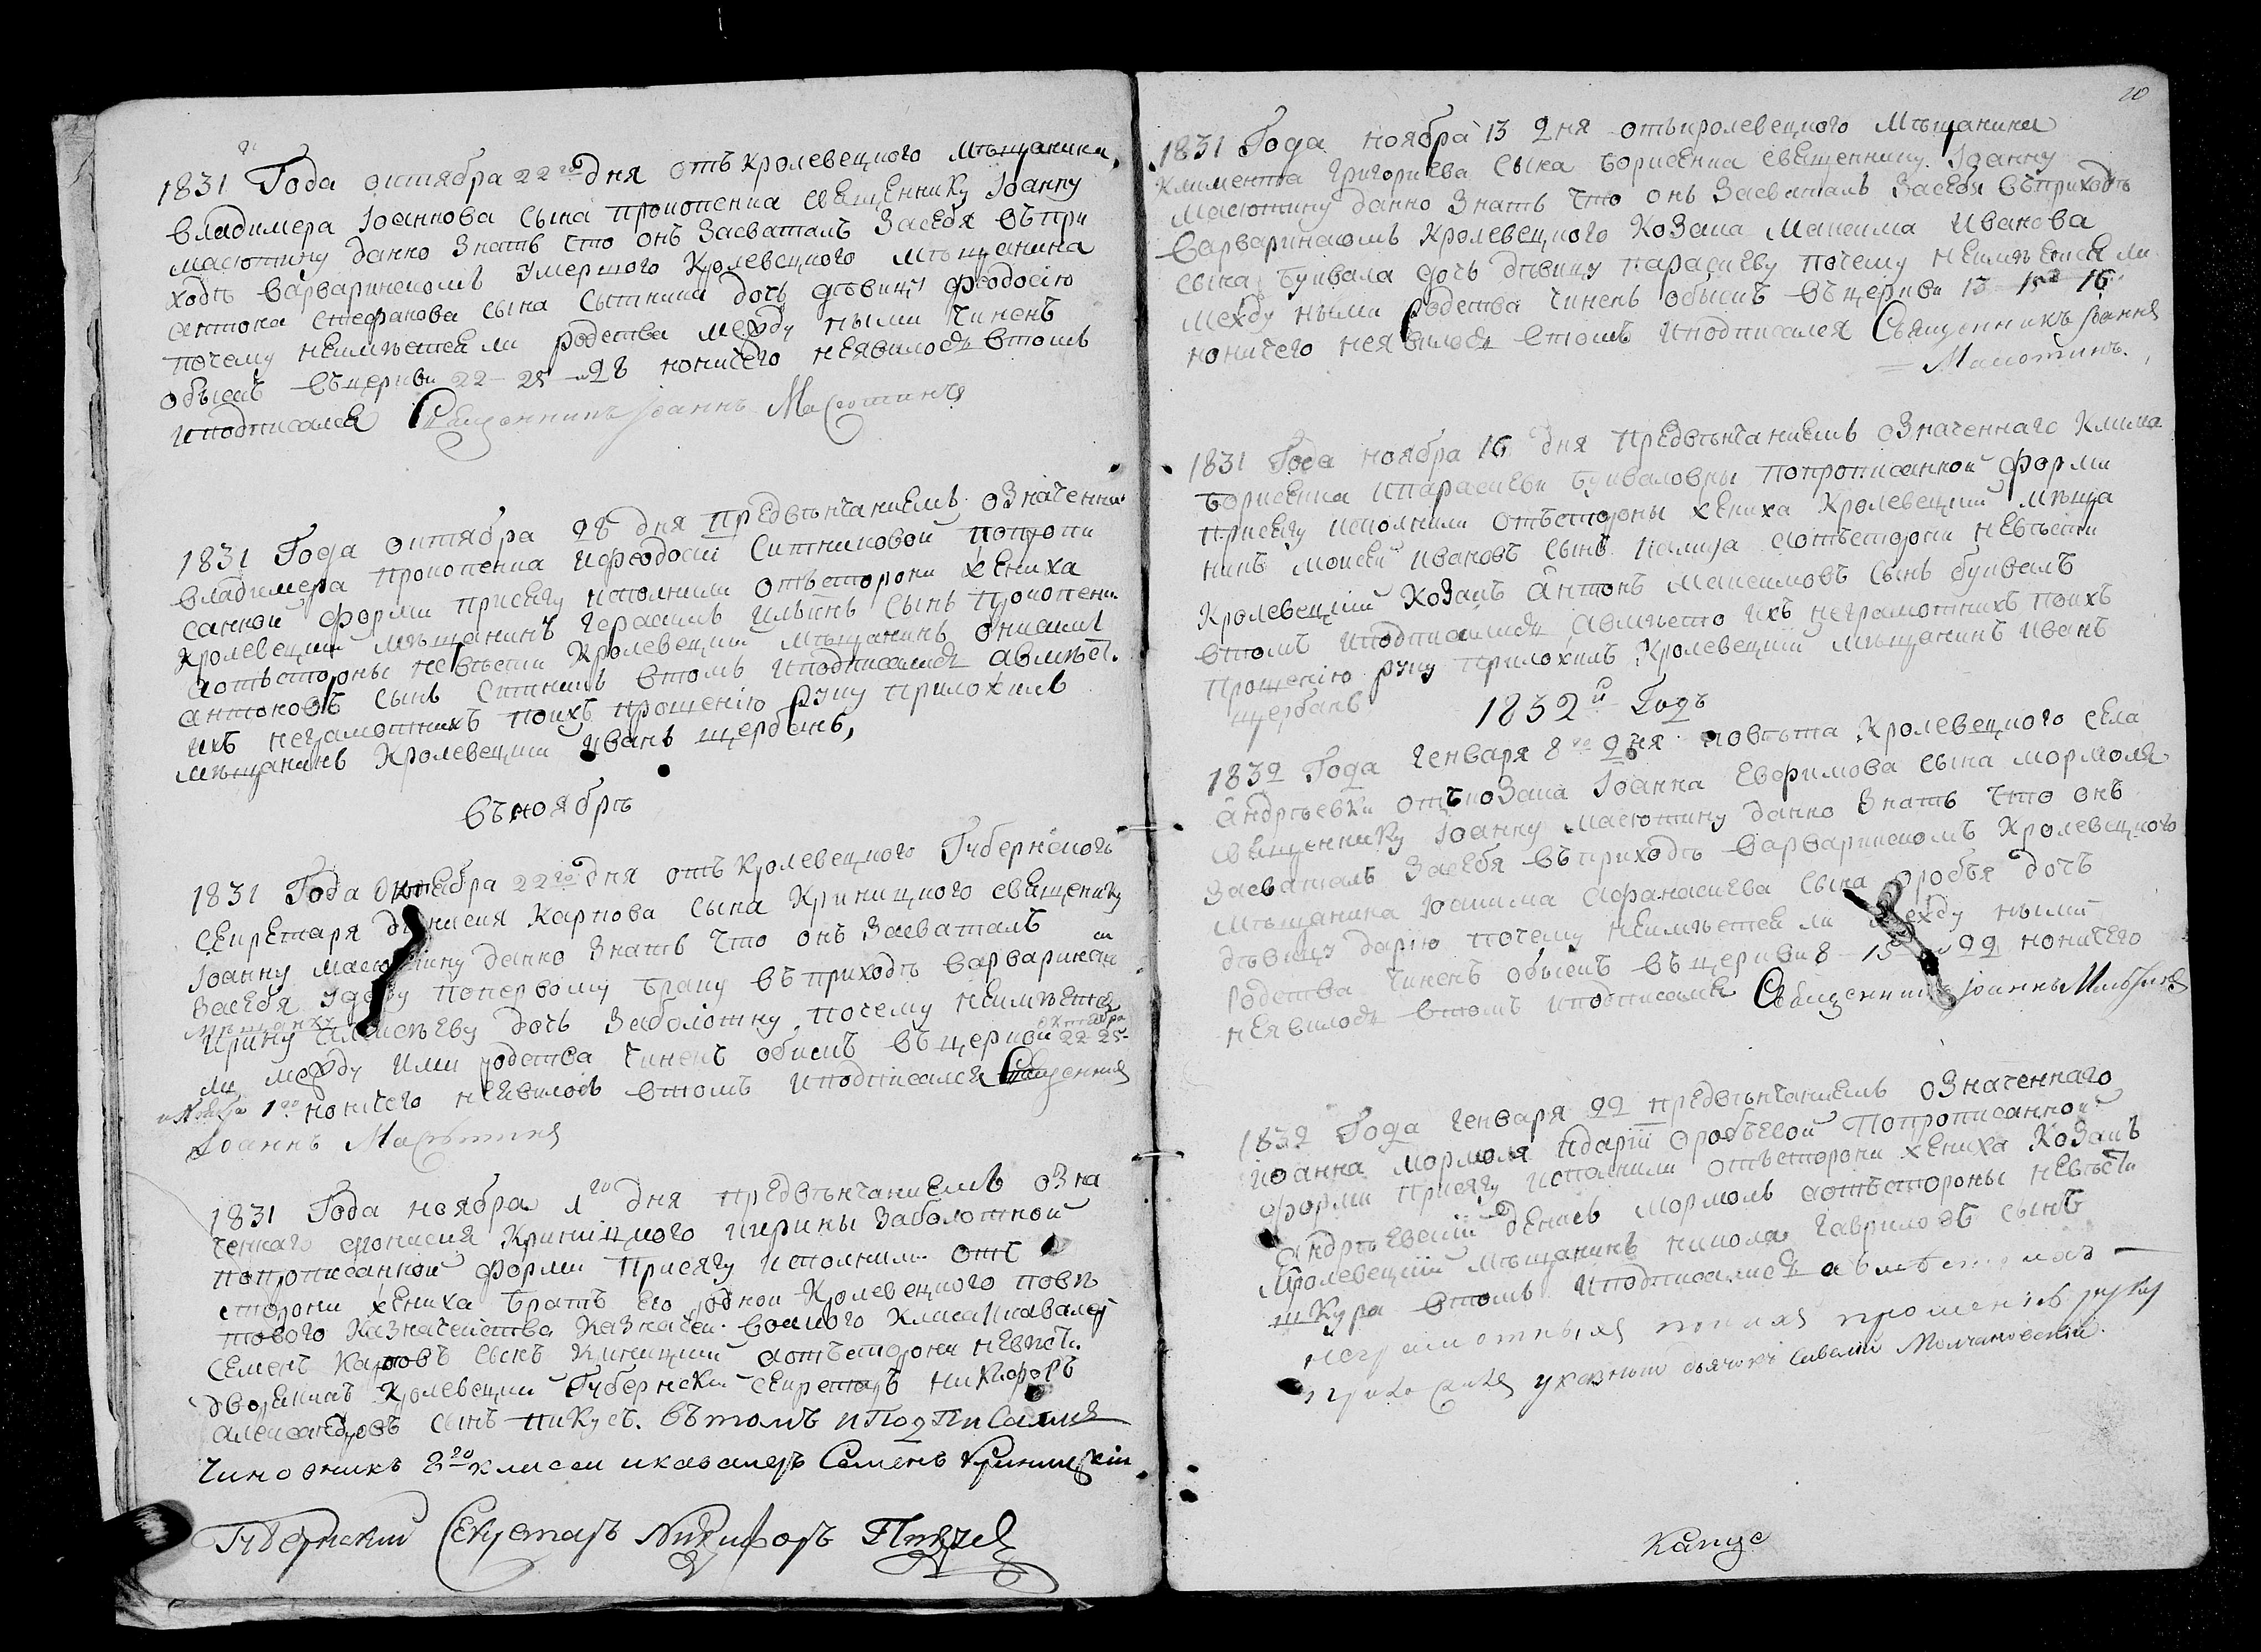 1831 Года октября 22го дня отъ Кролевецкого Мѣщанина
Владимера Іоаннова сына Прокопенка священнику Іоанну
Масютину данно знать что онъ засваталъ засебя въпри
ходѣ варваринскомъ умершого Кролевецкого мѣщанина
антона стефанова сына Сытника дочь дѣвицу феодосію
почему неимѣется ли родства между ными Чиненъ
обыскъ въцеркви 22 25 и 28 ноничего неявилось втомъ
иподписался Священникъ Іоаннъ Масютинъ
1831 Года октября 28 дня Предвѣнчаниемъ означенни
Владимера Прокопенка ифеодосіи Ситниковой попропи
санной форми присягу исполнили отъсторони жениха
Кролевецкий мѣщанинъ Герасимъ Ильинъ сынъ Прокопенк
аотъстороны невѣсти Кролевецкий мѣщанинъ
антоновъ сынъ Ситникъ втомъ иподписалися авмѣст.
ихъ неграмотнихъ поихъ прошенію руку приложилъ
мѣщанинъ Кролевецкий Иванъ щербакъ,
въноябрѣ
1831 Года октября 22го дня отъ Кролевецкого Губернского
секретаря дионисия Карпова сына Криницкого священику
Іоанну Масютину данно знать что онъ засваталъ
засебя удову поперво́му браку въ приходѣ варваринск
мѣщанку
Ирину алексѣеву дочь Заболотну почему неимѣется
октября
ли между ими родства чиненъ обискъ въцеркви 22 25
и Ноября 1го ноничего неявилось втомъ иподписался Священникъ
Іоаннъ Масютинъ
1831 Года ноября 1го дня предвѣнчаниемъ озна
ченнаго дионисия Криницкого иирины Заболотной
попрописанной форми Присягу исполнили отъ
сторони жениха братъ его родной Кролевецкого повѣ
тового Казначейства Казначей восмого класа икавалер
Семенъ Карповъ сынъ Криницкий аотъсторони невѣсти
дворянинъ Кролевецкий Губернский секретаръ никифоръ
александровъ сынъ пикусъ. въ томъ и Подписалися
Чиновникъ 8го класси икавалеръ Семенъ Криницкій
Губернский Секретаръ Никифоръ Пикус
20
1831 Года ноября 13 дня отькролевецкого Мѣщанина
Климента Григориева сына борисенка священнику Іоанну
Масютину данно знать что онъ засваталъ засебя въприходѣ
варваринскомъ Кролевецкого Козака Максима Иванова
сына буивала дочь дѣвицу парасиеву почему неимѣется ли
между ными родства чиненъ обыскъ въцеркви 13 15 16
ноничего неявилось втомъ иподписался Священникъ Іоаннъ
Масютинъ.
1831 Года ноября 16 дня предвѣнчаниемъ означеннаго Клима
борисенка ипарасиеви буиваловны попрописанной форми
присягу исполнили отъстороны жениха Кролевецкий мѣща
нинъ Моисей Ивановъ сынъ аотъсторони невѣсти
Кролевецкій Козакъ антонъ максимовъ сынъ буивалъ
втомъ иподписалися авмѣсто ихъ неграмотнихъ поихъ
прошенію руку приложилъ Кролевецкий мѣщанинъ Иванъ
щербакъ
1832й Годъ
1832 Года Генваря 8го дня повѣта Кролевецкого села
андрѣевки отъкозака Іоанна Евфимова сына мормоля
священнику Іоанну масютину данно знать что онъ
засваталъ засебя въприходѣ варваринскомъ Кролевецкого
мѣщанина Іоакима афанасиева сына оробъя дочъ
дѣвицу дарію почему неимѣется ли между ными
родства чиненъ обыскъ въцеркви 8 15 и 22 ноничего
неявилось втомъ иподписался Священникъ Іоаннъ
1832 Года Генваря 22 предвѣнчаниемъ означеннаго
иоанна мормоля идаріи оробъевой попрописанной
форми присягу исполнили отъсторони жениха Козакъ
андрѣевский денисъ мормоль аотъстороны невѣсти
Кролевецкій мѣщанинъ никола Гавриловъ сынъ
шкура втомъ иподписалися авмѣсто ихъ
неграмотныхъ поихъ прошению руку
приложилъ указный дьячокъ Савелий Молчановский.
Капус